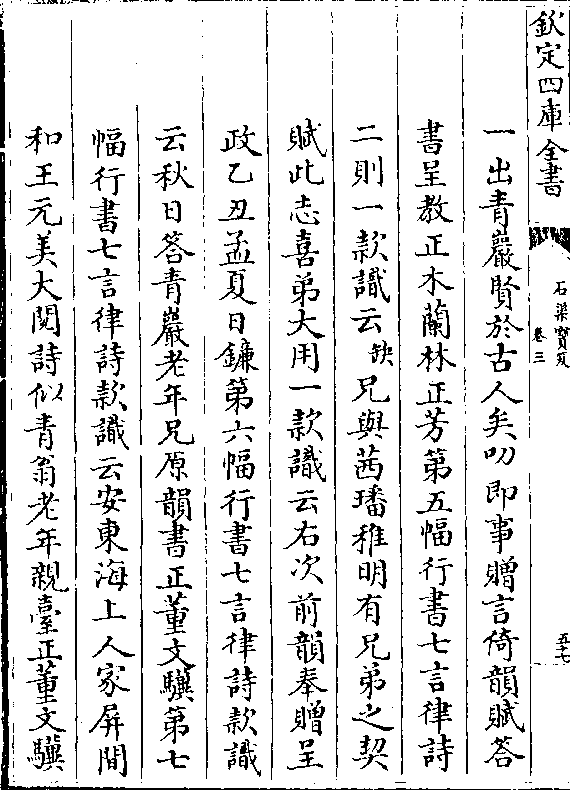 欽定四庫全書
石渠寶笈
卷三
五十七
一出青巖賢於古人矣叨即事贈言倚韻賦答
書呈教正木蘭林正芳第五幅行書七言律詩
二則一款識云缺兄與茜璠稚明有兄弟之契
賦此志喜弟大用一款識云右次前韻奉贈呈
政乙丑孟夏日鐮第六幅行書七言律詩款識
云秋日答青巖老年兄原韻書正董文驥第七
幅行書七言律詩款識云安東海上人家屏間
和王元美大閱詩似青翁老年親臺正董文驥